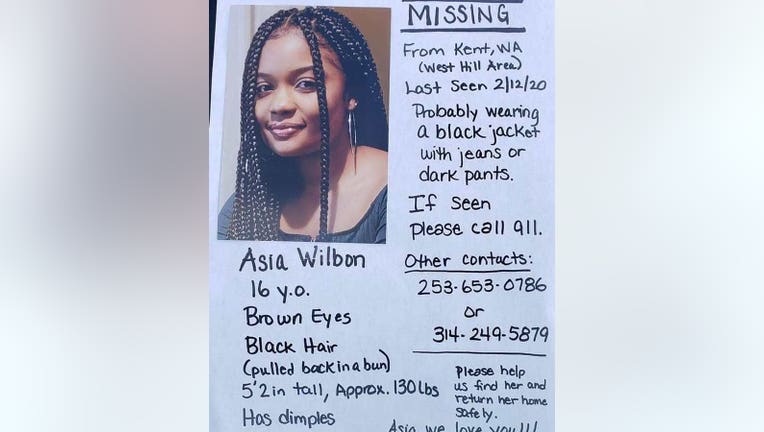 MISSING
From Kent, WA
(West Hill Area)
Last Seen 2/12/20
Probably wearing
a black jacket
with jeans or
dark pants.
If Seen
please call 911.
Other contacts:
253-653-0786
or
314-249-5879
Please help
us find her and
return her home
safely.
Asia we love you!!!
Asia Wilbon
16 y.o.
Brown Eyes
Black Hair
(pulled back in a bun)
5'2 in tall, Approx. 130 lbs
Has dimples